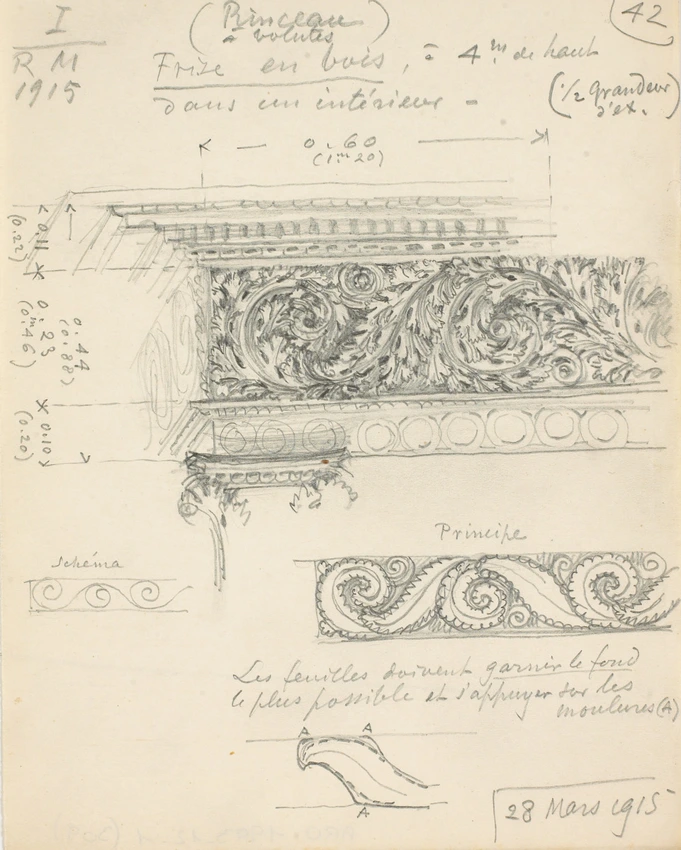 I
R M
1915
(Rinceau
à volutes)
42
Frize en bois, à 4.m de haut
dans un intérieur -
(1/2 grandeur
d'ex.)
0.60
(1m20)
0.11
(0.22)
0.23
(0m46)
0.44
(0.88)
0.10
(0.20)
Schéma
Principe
Les feuilles doivent garnir le fond
le plus possible et s'appuyer sur les
moulures (A)
A A
A
28 Mars 1915